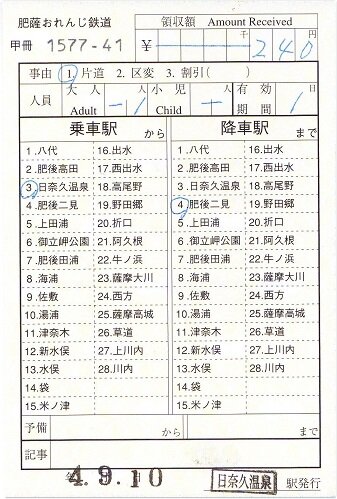 肥薩おれんじ鉄道 領収額 Amount Received
甲冊 1577-41 ¥ 千 240 円
事由 1.片道 2.区変 3.割引( )
人員 大人 Adult 1人 小児 Child 人 有効期間 1日
乗車駅から 降車駅まで
1.八代 16.出水 1.八代 16.出水
2.肥後高田 17.西出水 2.肥後高田 17.西出水
3.日奈久温泉 18.高尾野 3.日奈久温泉 18.高尾野
4.肥後二見 19.野田郷 4.肥後二見 19.野田郷
5.上田浦 20.折口 5.上田浦 20.折口
6.御立岬公園 21.阿久根 6.御立岬公園 21.阿久根
7.肥後田浦 22.牛ノ浜 7.肥後田浦 22.牛ノ浜
8.海浦 23.薩摩大川 8.海浦 23.薩摩大川
9.佐敷 24.西方 9.佐敷 24.西方
10.湯浦 25.薩摩高城 10.湯浦 25.薩摩高城
11.津奈木 26.草道 11.津奈木 26.草道
12.新水俣 27.上川内 12.新水俣 27.上川内
13.水俣 28.川内 13.水俣 28.川内
14.袋 14.袋
15.米ノ津 15.米ノ津
予備 から まで
記事
4.9.10 日奈久温泉 駅発行